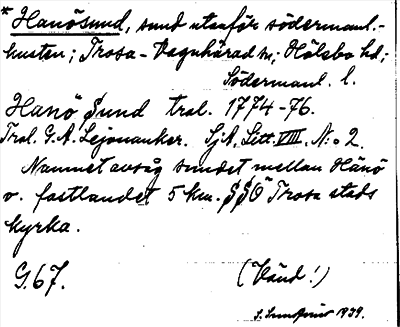 * Hanösund, sund utanför södermanl.-
kusten; Trosa-Vagnhärad sn; Hölebo hd;
Södermanl. l.
Hanö Sund tral. 1774-76.
Tral. G.A. Lejonanker. SjA, Litt. VIII. N:o 2.
Namnet avsåg sundet mellan Hånö
o. fastlandet 5 km. SSÖ Trosa stads
kyrka.
G. 67. (Vänd!)
1939.